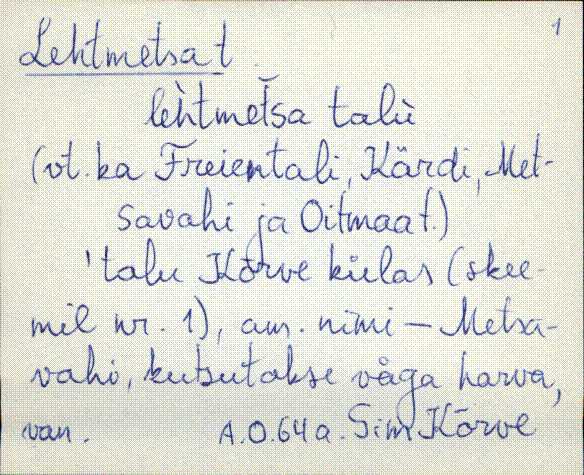 1
Lehtmetsa t.
lèhtmetš̆a talù
(vt. ka Freientali, Kärdi, Met-
savahi ja Oitmaat.)
'talu Kõrve külas (skee-
mil nr. 1), am. nimi – Metsa-
vahi, kutsutakse väga harva,
van. A.O. 64 a. Sim Kõrve